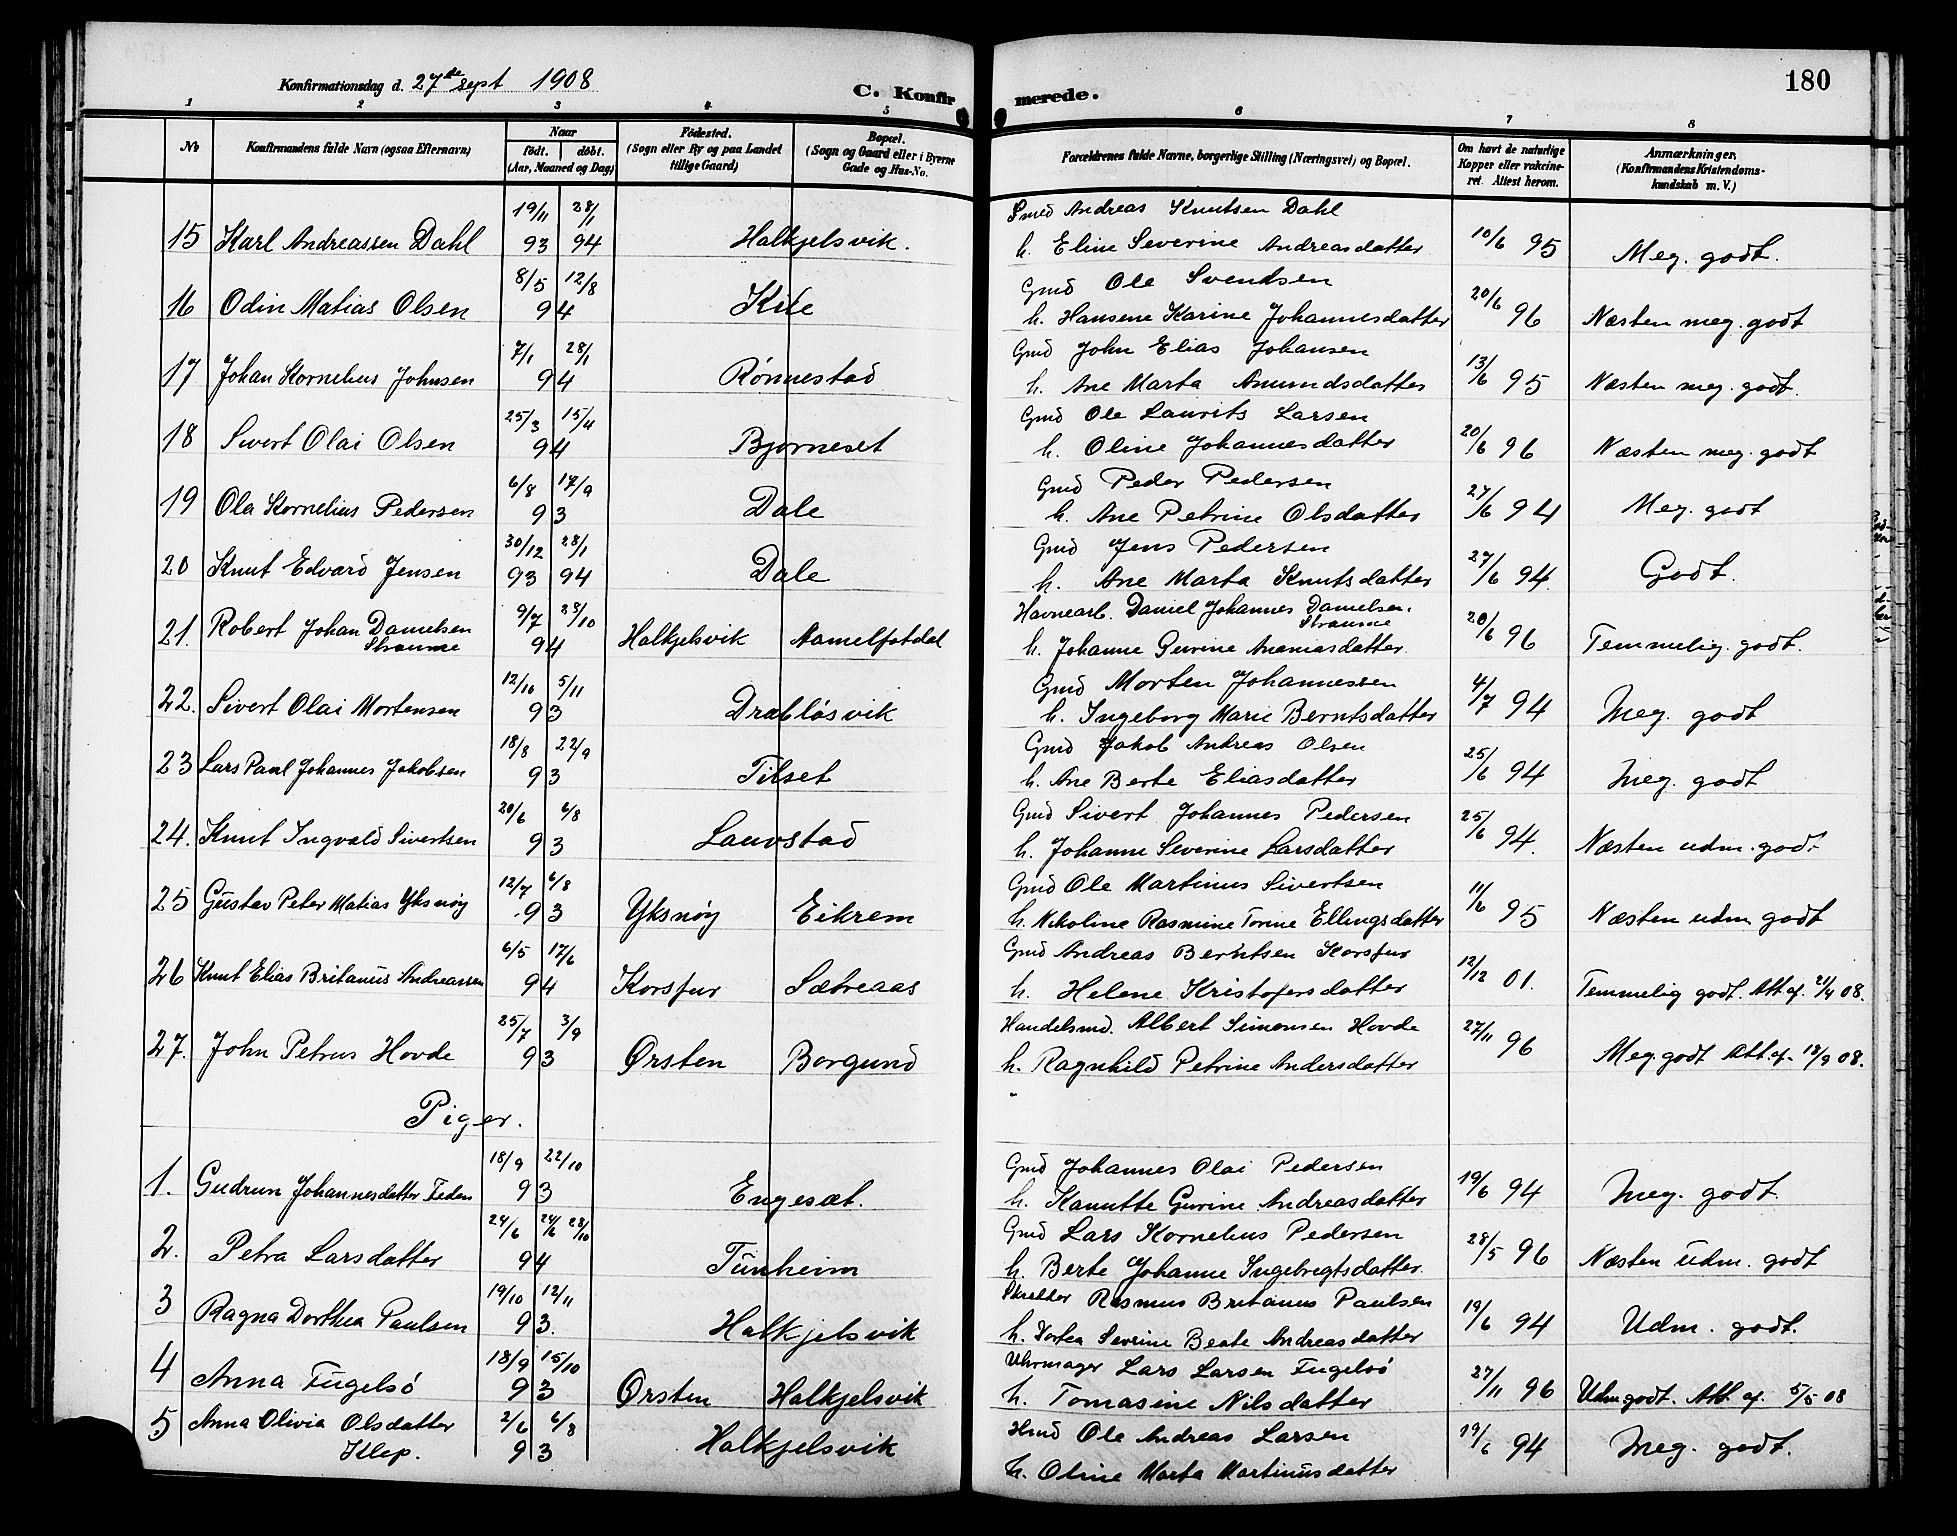 180
Konfirmationsdag d. 27de sept 1908
C. Konfirmerede.
1 2 3 4 5 6 7 8
No
Konfirmandens fulde Navn (ogsaa Efternavn)
Naar
født. døbt.
(Aar, Maaned og Dag)
Fødested.
(Sogn eller By og paa Landet
tillige Gaard)
Bopæl.
(Sogn og Gaard eller i Byerne
Gade og Hus-No.
Forældrenes fulde Navne, borgerlige Stilling (Næringsvei) og Bopæl.
Om havt de naturlige
Kopper eller vakcine-
ret. Attest herom.
Anmærkninger.
(Konfirmandens Kristendoms-
kundskab m. V.)
19/11 28/1 Smed Andreas Knutsen Dahl
15 Karl Andreassen Dahl 93 94 Halkjelsvik. h. Eline Severine Andreasdatter 10/6 95 Meg. godt.
8/5 12/8 Gmd Ole Svendsen
16 Odin Matias Olsen 94 Kile h. Hansene Karine Johannesdatter 20/6 96 Næsten meg. godt
7/1 28/1 Gmd John Elias Johansen
17 Johan Kornelius Johnsen 94 Rønnestad h. Ane Marta Amundsdatter 13/6 95 Næsten meg. godt.
25/3 15/4 Gmd Ole Laurits Larsen
18 Sivert Olai Olsen 94 Bjørneset h. Oline Johannesdatter 20/6 96 Næsten meg. godt
6/8 17/9 Gmd Peder Pedersen
19 Ola Kornelius Pedersen 93 Dale h. Ane Petrine Olsdatter 27/6 94 Meg. godt
30/12 28/1 Gmd Jens Pedersen
20 Knut Edvard Jensen 93 94 Dale h. Ane Marta Knutsdatter 27/6 94. Godt.
9/7 28/10 Havnearb. Daniel Johannes Danielsen.
Straume
21. Robert Johan Danielsen 94 Halkjelsvik Aamelfotdal h. Johanne Gurine Ananiasdatter. 20/6 96 Temmelig. godt.
Straume
12/10 5/11 Gmd Morten Johannessen
22. Sivert Olai Mortensen 93 Drabløsvik h. Ingeborg Marie Berntsdatter 4/7 94 Meg. godt
18/8 22/9 Gmd Jakob Andreas Olsen
23 Lars Paul Johannes Jakobsen 93 Titset h. Ane Berte Eliasdatter 25/6 94 Meg. godt
20/6 6/8 Gmd Sivert Johannes Pedersen
24. Knut Ingvald Sivertsen 93 Lauvstad h. Johanne Severine Larsdatter 25/6 94. Næsten udm. godt
12/7 6/8 Gmd Ole Martinus Sivertsen
25 Gustav Peter Matias Yksnøy 93 Yksnøy Eikrem h. Nikoline Rasmine Torine Ellingsdatter 11/6 95 Næsten udm godt
6/5 17/6 Gmd Andreas Berntsen Korsfur
26 Knut Elias Britanus Andreassen 94 Korsfur Sætreaas h. Helene Kristofersdatter 12/12 01. Temmelig godt. Att. af. 21/4 08.
25/7 3/9 Handelsmd. Albert Simonsen Hovde
27. John Petrus Hovde 93 Ørsten Borgund h. Ragnhild Petrine Andersdatter 27/11 96 Meg. godt Att. af. 18/9 08.
Piger.
18/9 22/10 Gmd Johannes Olai Pedersen
1. Gudrun Johannesdatter Feden 93 Engesæt. h. Kanutte Gurine Andreasdatter 19/6 94 Meg. godt.
24/6 24/6 28/10 Gmd Lars Kornelius Pedersen
2. Petra Larsdatter 94 Tunheim h. Berte Johanne Ingebregtsdatter. 28/5 96 Næsten udm. godt
19/10 12/11 Skrædder Rasmus Britanus Paulsen
3 Ragna Dorthea Paulsen 93. Halkjelsvik h. Dortea Sevrine Beate Andreasdatter 19/6 94 Udm. godt.
18/9 15/10 Uhrmager Lars Larsen Fugelsø
4 Anna Fugelsø 93 Ørsten Halkjelsvik h. Tomasine Nilsdatter 27/11 96 Udm godt. Att. af. 5/5 08
2/6 6/8 Hmd Ole Andreas Larsen
5. Anna Olivia Olsdatter 93 Halkjelsvik 19/6 94 Meg. godt.
Klep. h. Oline Marta Martinusdatter